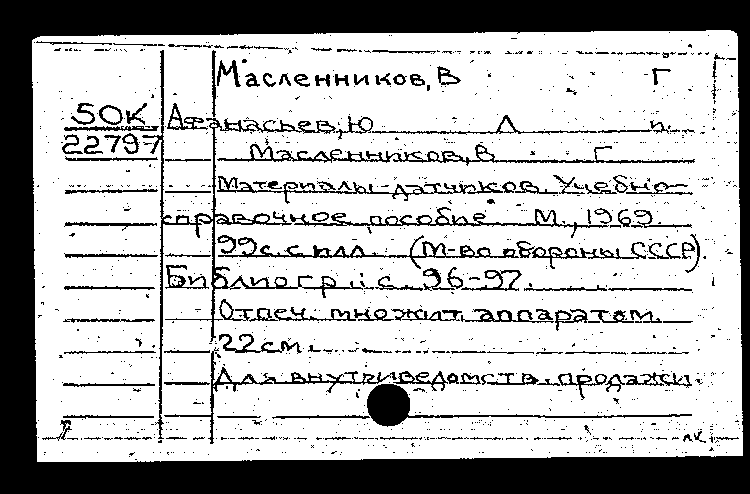 Масленников, В Г
50К Афанасьев, Ю Л
22797 Масленников, В Г
Материалы датчиков. Учебно-
справочное пособие. М., 1969.
99с. с илл. (М-во обороны СССР).
Библиогр.: с. 96-97.
Отпеч. множит. аппаратом.
22см.
Для внутриведомств. продажи.